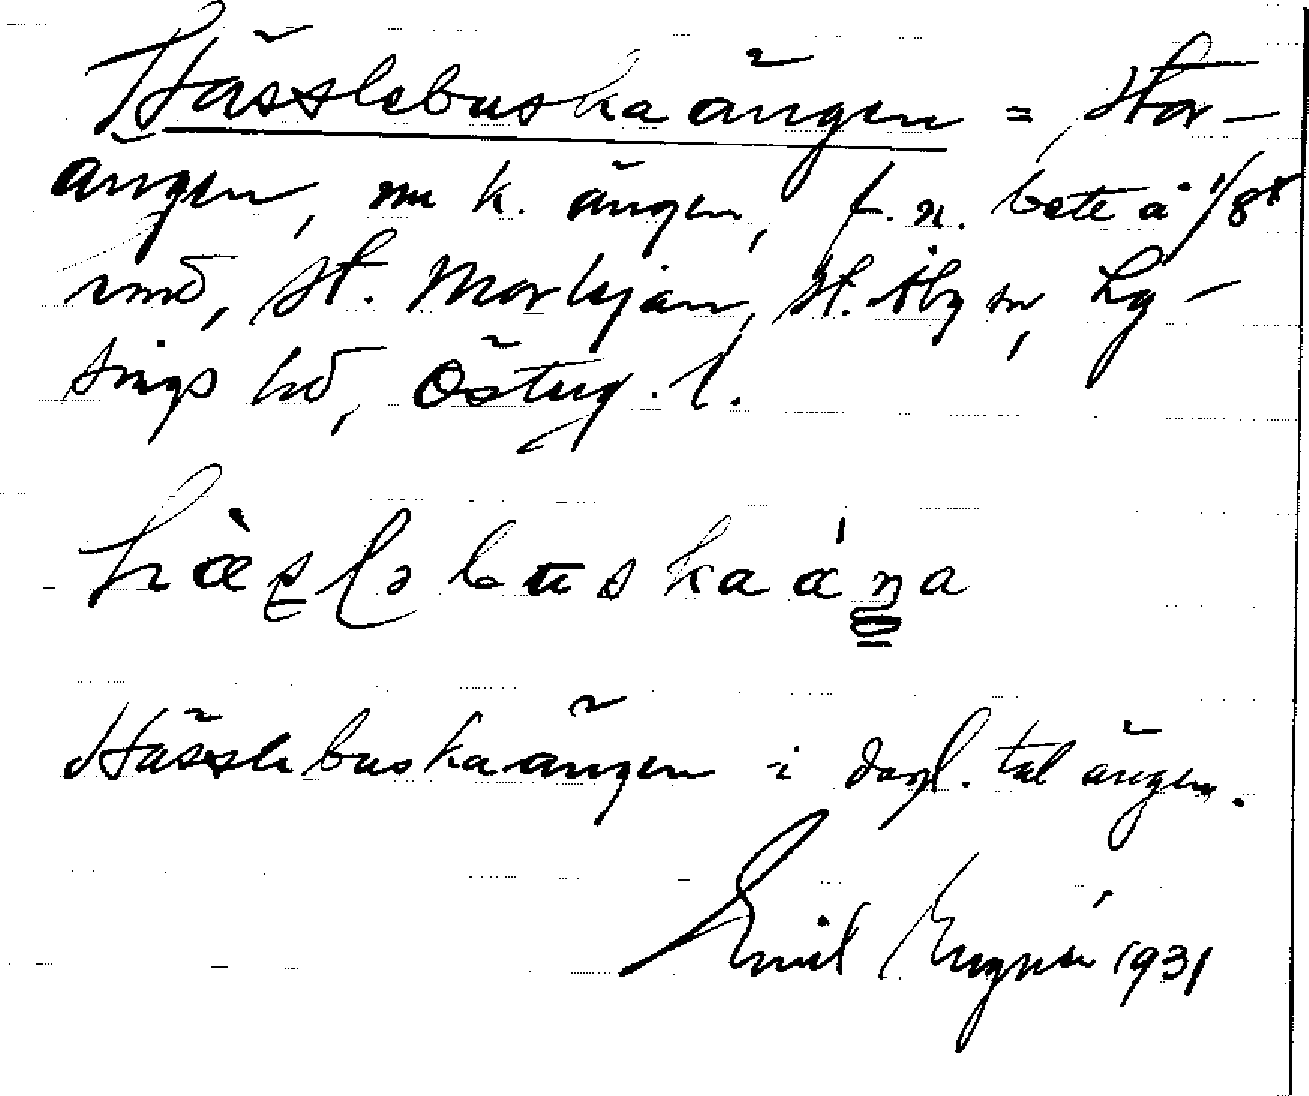 Hässlebuskaängen = Stor-
ängen, nu k. ängen, f.n. bete å 1/8
smd, St. Morkjan, St. Åby sn, Ly-
sings hd, Österg. l.
hæ̀slebuskaáŋa
Hässlebuskaängen i dagl. tal ängen.
Emil 1931